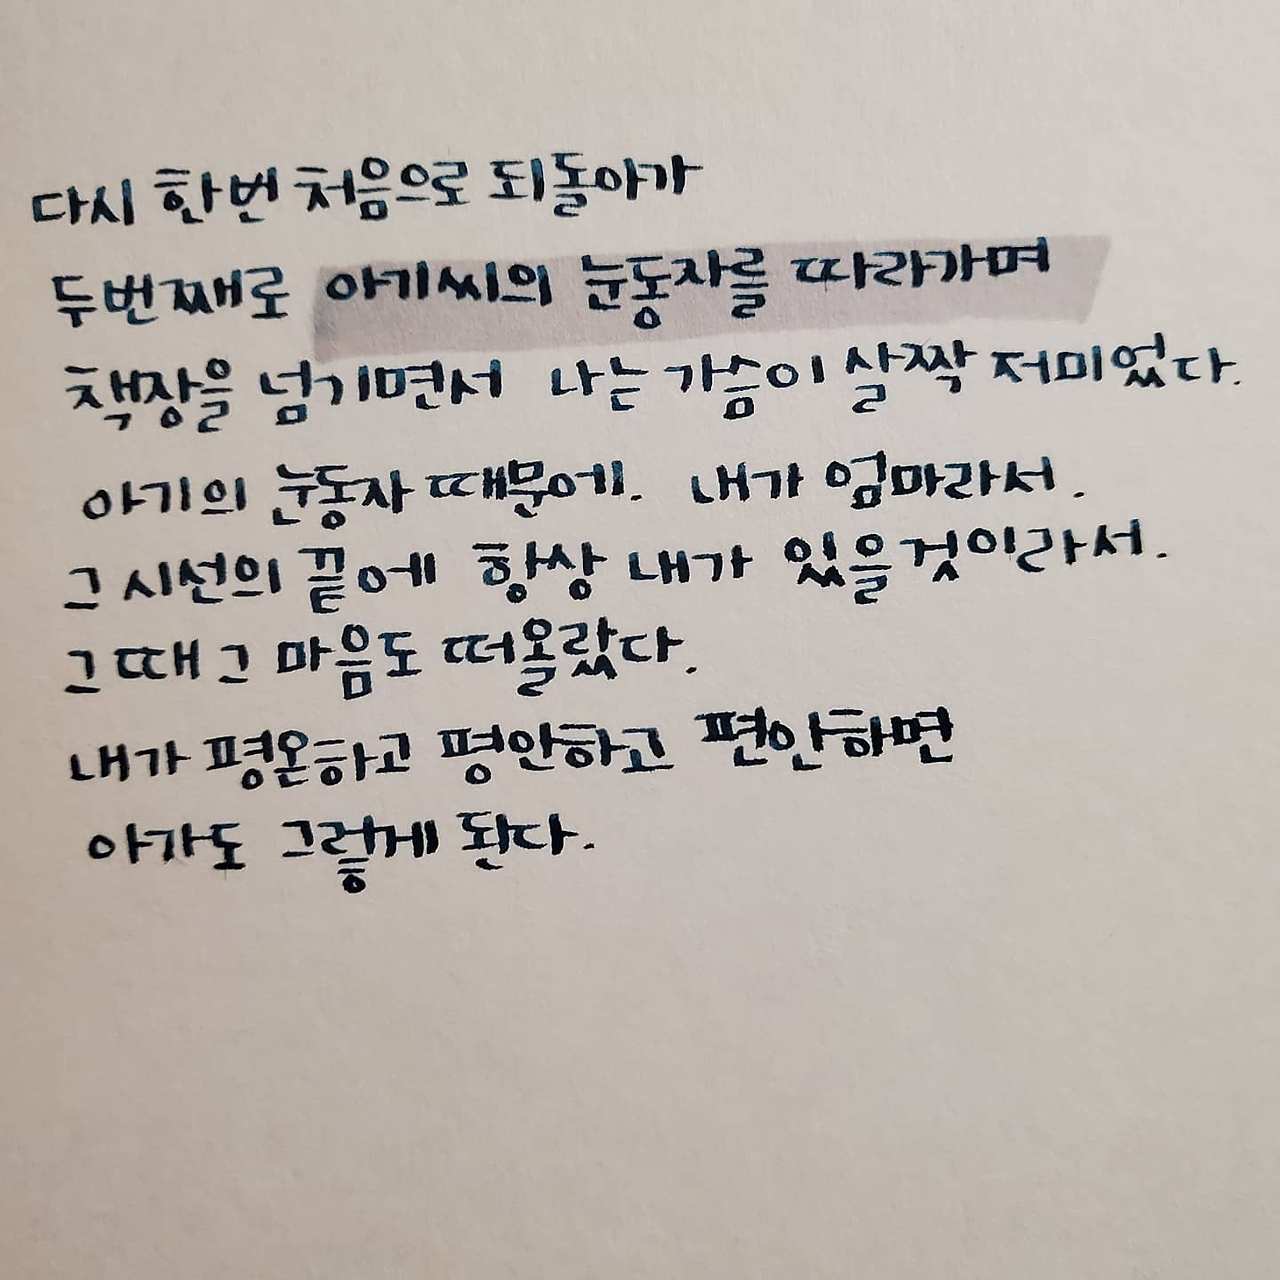 다시 한번 처음으로 되돌아가
두번째로 아기씨의 눈동자를 따라가며
책장을 넘기면서 나는 가슴이 살짝 저미었다.
아기의 눈동자 때문에. 내가 엄마라서.
그 시선의 끝에 항상 내가 있을것이라서.
그때 그 마음도 떠올랐다.
내가 평온하고 평안하고 편안하면
아가도 그렇게 된다.